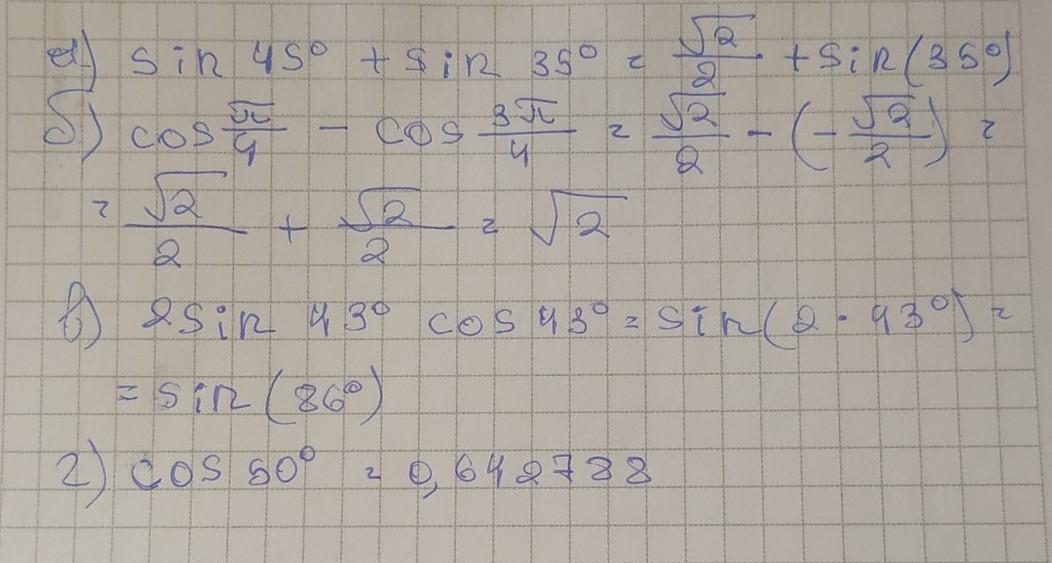 а) sin 45° + sin 35° = √2/2 + sin(35°)
б) cos π/4 − cos 3π/4 = √2/2 − (−√2/2) =
= √2/2 + √2/2 = √2
в) 2sin 43° cos 43° = sin(2 · 43°) =
= sin(86°)
г) cos 50° = 0,642788